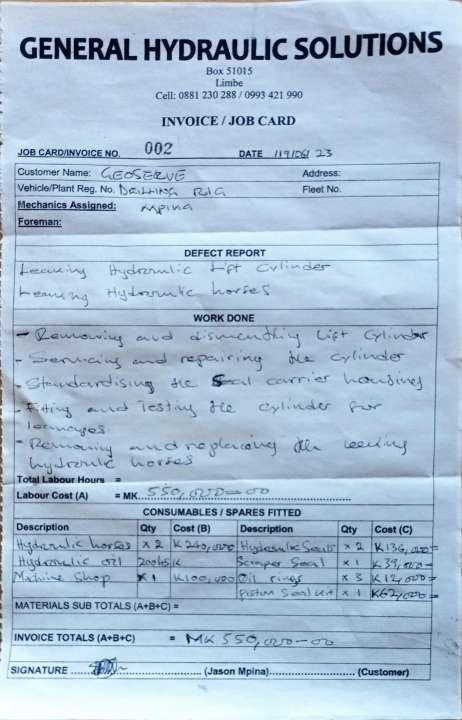 GENERAL HYDRAULIC SOLUTIONS
Box 51015
Limbe
Cell: 0881 230 288 / 0993 421 990
INVOICE / JOB CARD
JOB CARD/INVOICE NO. 002 DATE 23
Customer Name: GEOSERVE Address:
Vehicle/Plant Reg. No. DRILLING RIG Fleet No.
Mechanics Assigned: Mpina
Foreman:
DEFECT REPORT
Leaking Hydraulic Lift Cylinder
Leaking Hydraulic horses
WORK DONE
- Removing and dismantling Lift Cylinder
- Servicing and repairing the cylinder
- Standardising the Seal carrier housings
- Fitting and Testing the cylinder for
leakages
- Removing and replacing the leaking
hydraulic horses
Total Labour Hours =
Labour Cost (A) = MK. 550,000=00
CONSUMABLES / SPARES FITTED
Description Qty Cost (B) Description Qty Cost (C)
Hydraulic horses x 2 K240,000 Hydraulic Seals x 2 K136,000=
Hydraulic oil Scraper Seal x 1 K39,000=
Machine Shop x 1 K100,000 Oil rings x 3 K12,000=
Piston Seal Kit x 1 K62,000=
MATERIALS SUB TOTALS (A+B+C) =
INVOICE TOTALS (A+B+C) = MK 550,000=00
SIGNATURE (Jason Mpina) (Customer)